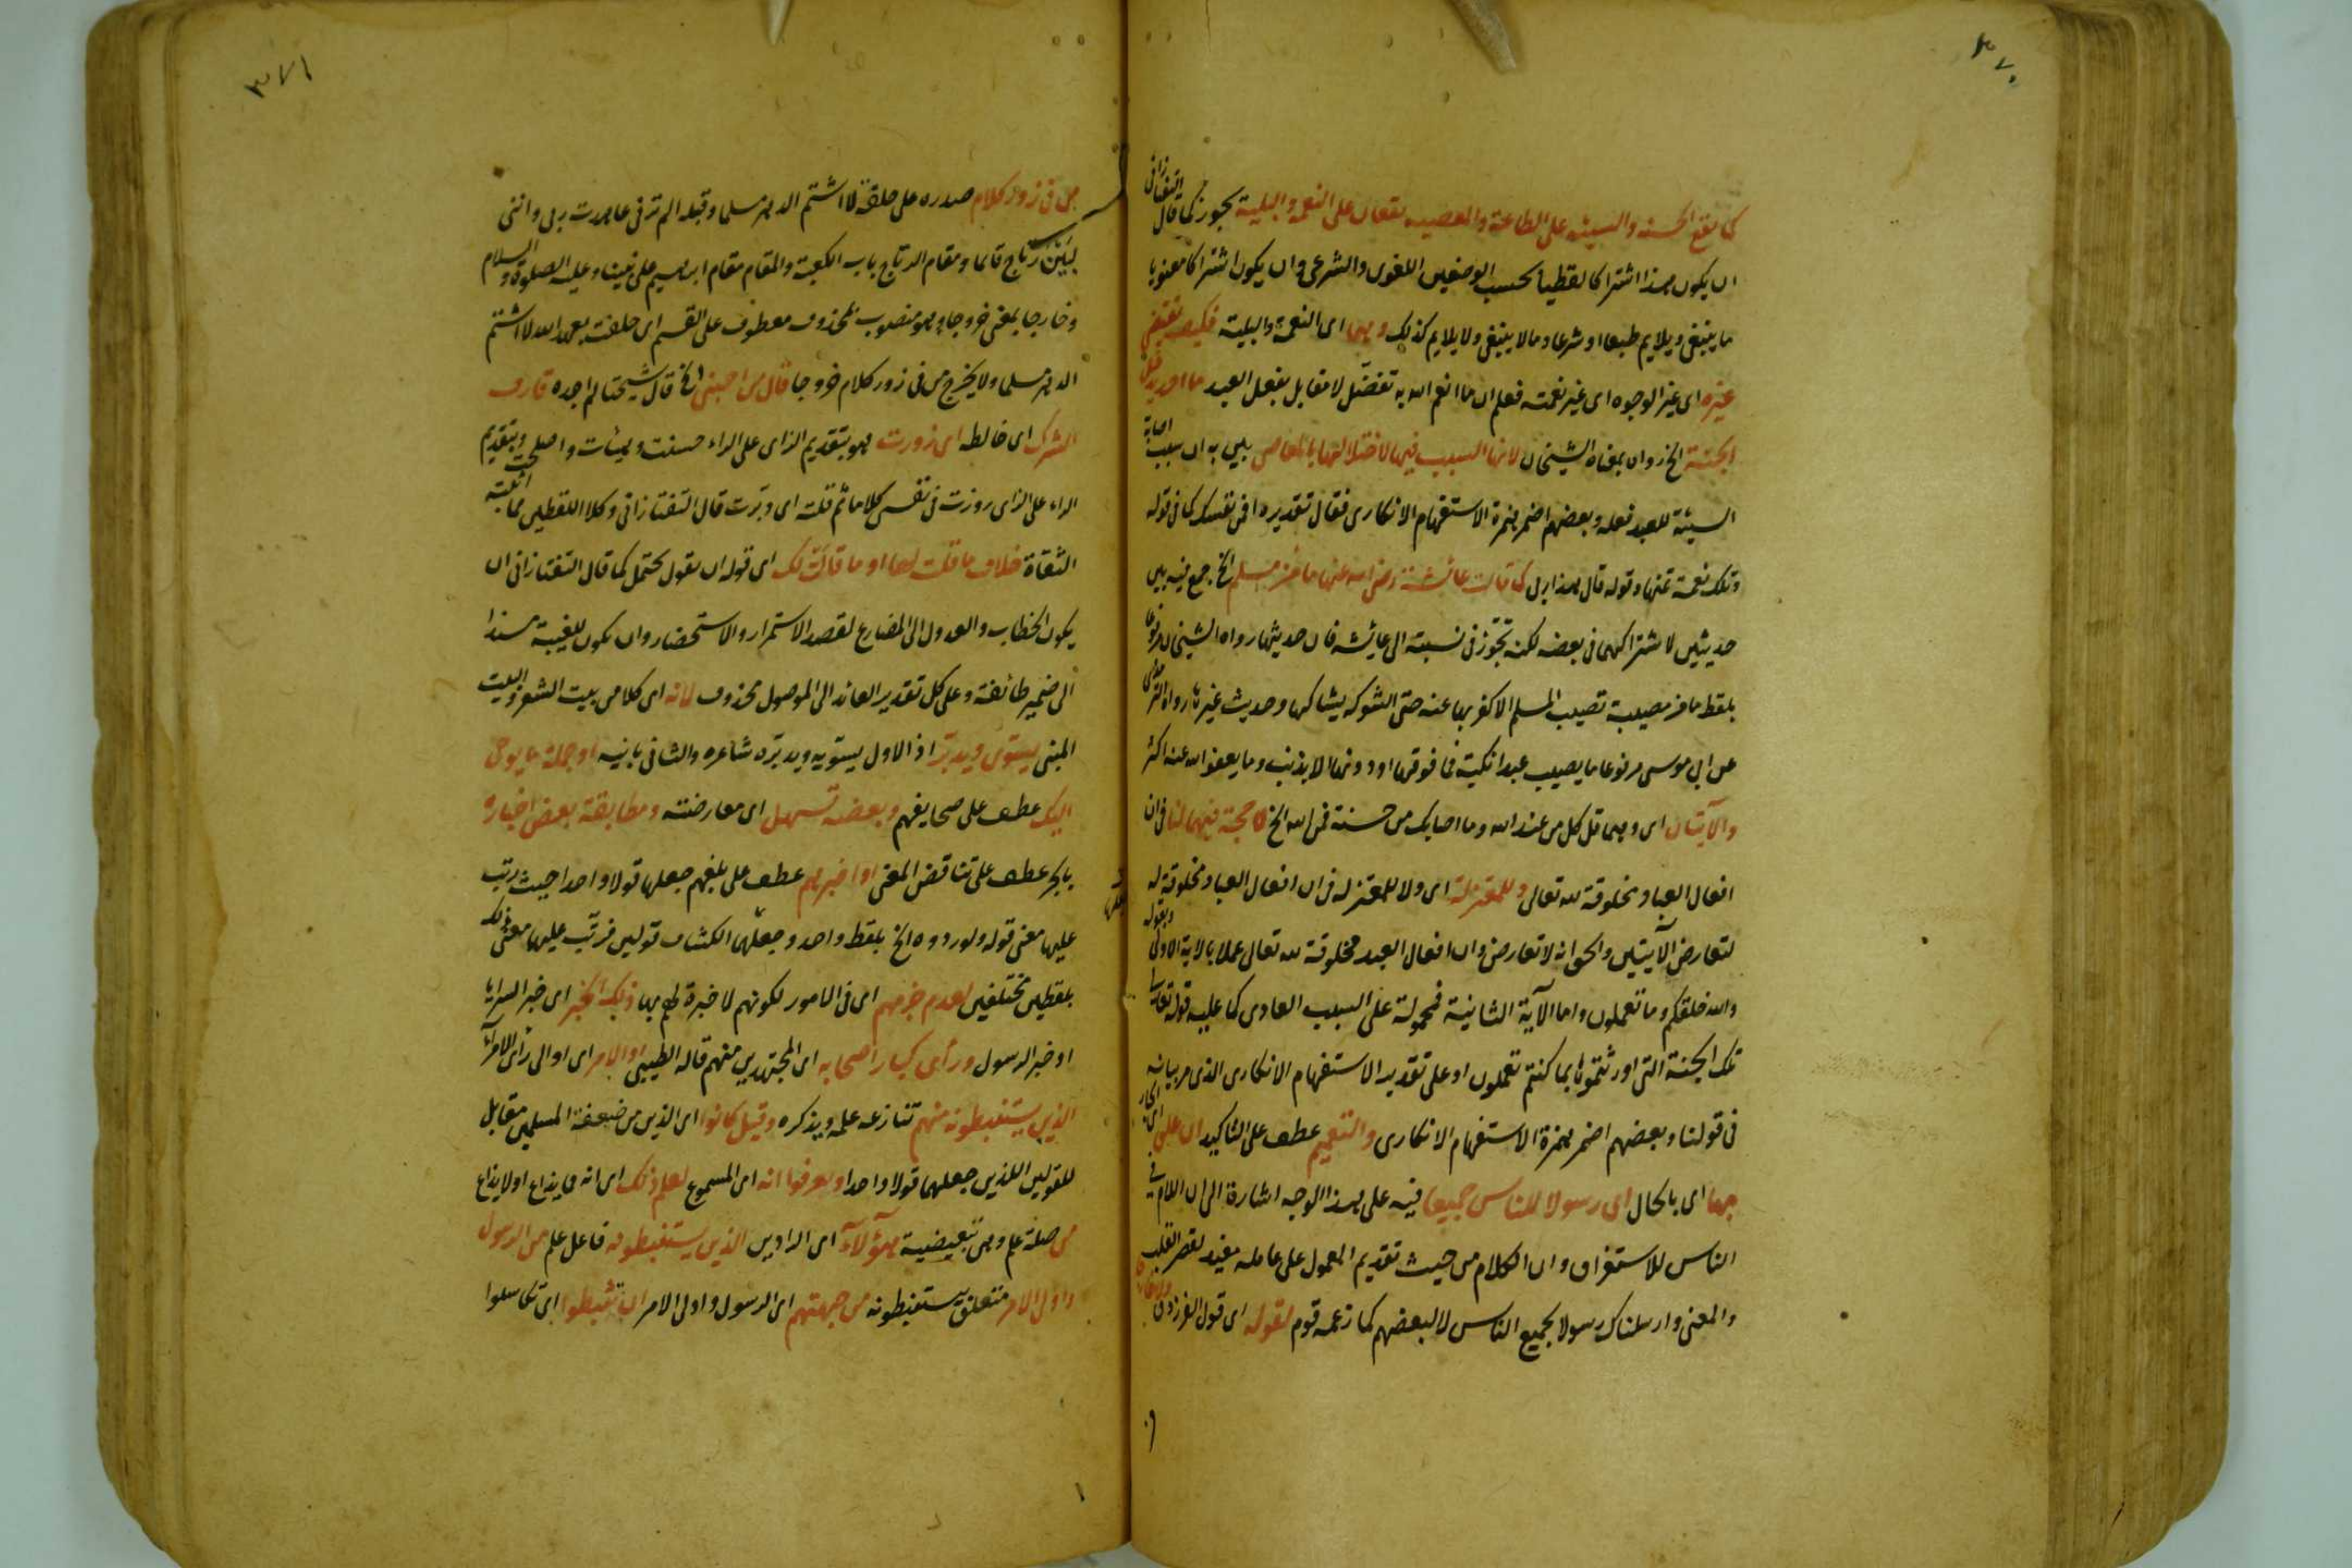 ٣٧٠
كما تقع الحسنة والسيئة على الطاعة والمعصية يقعان على النعمة والبلية يجوز كما قال التفتازانى
ان يكون هذا اشتراكا لفظيا بحسب الوضعين اللغوى والشرعى وان يكون اشتراكا معنويا
ما ينبغى ويلايم طبعا او شرعا وما لا ينبغى ولا يلايم كذلك وهما اى النعمة والبلية فكيف يقتضى
غيره اى غير الوجود اى غير نعمته فعلم ان ما انعم الله به تفضل لا مقابل بفعل العبد ما احد يدخل
الجنة الخ رواه بمعناه الشيخان لانها السبب فيها لاختلالتها بالمعاصى بين به ان سبب اصابة
السيئة للعبد فعله وبعضهم اضمر همزة الاستفهام الانكارى فقال تقديره افمن نفسك كما فى قوله
وتلك نعمة تمنها وقوله قال هذا ربى كما قالت عائشة رضى الله عنها ما من مسلم الخ جمع فيه بين
حديثين لاشتراكهما فى بعضه لكنه تجوز فى نسبته الى عائشة فان حديثها رواه الشيخان مرفوعا
بلفظ ما من مصيبة تصيب المسلم الا كفر بها عنه حتى الشوكة يشاكها وحديث غيرها رواه الترمذى
عن ابى موسى مرفوعا ما يصيب عبدا نكبة فما فوقها او دونها الا بذنب وما يعفو الله عنه اكثر
والآيتان اى وهما قل كل من عند الله وما اصابك من حسنة فمن الله الخ لا حجة فيهما لنا فى ان
افعال العباد مخلوقة لله تعالى وللمعتزلة اى ولا للمعتزلة فى ان افعال العباد مخلوقة له
لتعارض الآيتين والحق انه لا تعارض وان افعال العبد مخلوقة لله تعالى عملا بالاية الاولى وبقوله
والله خلقكم وما تعملون واما الآية الثانية فمحمولة على السبب العادى كما عليه قوله تعالى
تلك الجنة التى اورثتموها بما كنتم تعملون او على تقدير الاستفهام الانكارى الذى مر بيانه
فى قولنا وبعضهم اضمر همزة الاستفهام الانكارى والتعميم عطف على التاكيد ان علق اى الجار
بها اى بالحال اى رسولا للناس جميعا فيه على هذا الوجه اشارة الى ان اللام فى
الناس للاستغراق وان الكلام من حيث تقديم المعمول على عامله مفيد لقصر القلب
والمعنى وارسلناك رسولا لجميع الناس لا لبعضهم كما زعمه قوم لقوله اى قول الفرزدق
٣٧١
من فى زور كلام صدره على حلفة لا اشتم الدهر مسلما وقبله الم ترنى عاهدت ربى واننى
لبين رتاج قائما ومقام الرتاج باب الكعبة والمقام مقام ابراهيم على نبينا وعليه الصلوة والسلام
وخارجا بمعنى خروجا وهو منصوب بمحذوف معطوف على القسم اى حلفت بعهد الله لا اشتم
الدهر مسلما ولا يخرج من فى زور كلام خروجا قال من احبنى الخ قال شيخنا لم اجده قارف
الشرك اى خالطه اى زورت هو بتقديم الزاى على الراء حسنت وهيئات واصلحت وبتقديم
الراء على الزاى روزت فى نفسى كلاما ثم قلته اى دبرت قال التفتازانى وكلا اللفظين مما اثبته
الثقاة خلاف ما قلت لها او ما قالت لك اى قوله ان تقول يحتمل كما قال التفتازانى ان
يكون الخطاب والعدول الى المضارع لقصد الاستمرار والاستحضار وان يكون للغيبة مسندا
الى ضمير طائفة وعلى كل تقدير العائد الى الموصول محذوف لانه اى كلا من بيت الشعر والبيت
المبنى يستوى ويدبر اذ الاول يستويه ويدبره شاعره والثانى بانيه او جملة ما يوحى
اليك عطف على صحايفهم وبعضه تسهل اى معارضته ومطابقة بعض اخباره
بالجر عطف على تناقض المعنى او اخبرهم عطف على بلغهم جعلها قولا واحدا حيث رتب
عليها معنى قوله ولو ردوه الخ بلفظ واحد وجعلها الكشاف قولين فرتب عليها معنى ذلك
بلفظين مختلفين لعدم حزمهم اى فى الامور لكونهم لا خبرة لهم بها ذلك الخبر اى خبر السرايا
او خبر الرسول ورأى كبار اصحابه اى المجتهدين منهم قاله الطيبى او الامر اى او الى رأى الامرآء
الذين يستنبطونه منهم تنازعه علمه ويذكره وقيل كانوا اى الذين من ضعفة المسلمين مقابل
للقولين اللذين جعلهما قولا واحدا ويعرفوا انه اى المسموع لعلم ذلك اى انه مما يذاع او لا يذاع
من صلة علم وهى تبعيضية هؤلآء اى الرادين الذين يستنبطونه فاعل علم من الرسول
واولى الامر متعلق يستنبطونه من جهتهم اى الرسول واولى الامر ان تثبطوا اى تكاسلوا